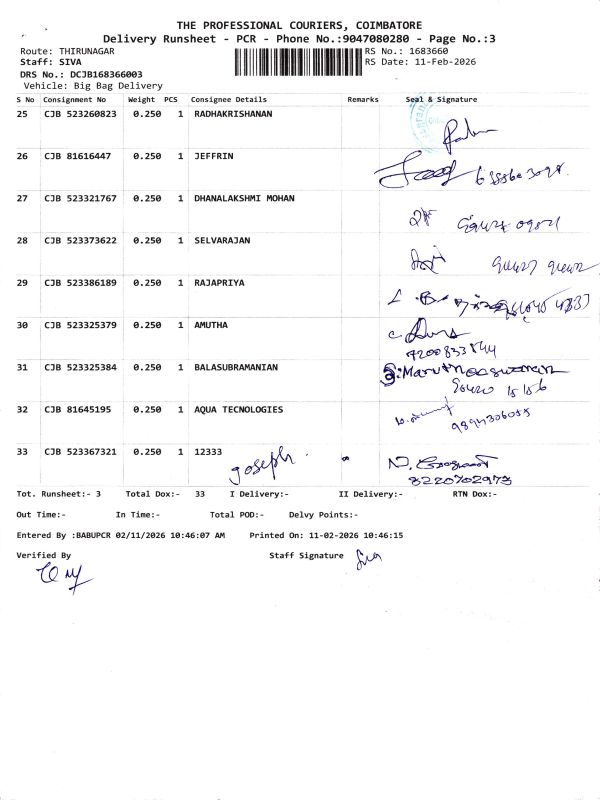 THE PROFESSIONAL COURIERS, COIMBATORE
Delivery Runsheet - PCR - Phone No.:9047080280 - Page No.:3
Route: THIRUNAGAR
RS No.: 1683660
Staff: SIVA
RS Date: 11-Feb-2026
DRS No.: DCJB168366003
Vehicle: Big Bag Delivery
S No Consignment No Weight PCS Consignee Details Remarks Seal & Signature
25 CJB 523260823 0.250 1 RADHAKRISHANAN
26 CJB 81616447 0.250 1 JEFFRIN
27 CJB 523321767 0.250 1 DHANALAKSHMI MOHAN
28 CJB 523373622 0.250 1 SELVARAJAN
29 CJB 523386189 0.250 1 RAJAPRIYA
30 CJB 523325379 0.250 1 AMUTHA
7200833844
31 CJB 523325384 0.250 1 BALASUBRAMANIAN
32 CJB 81645195 0.250 1 AQUA TECNOLOGIES
33 CJB 523367321 0.250 1 12333 joseph
8220702973
Tot. Runsheet:- 3 Total Dox:- 33 I Delivery:- II Delivery:- RTN Dox:-
Out Time:- In Time:- Total POD:- Delvy Points:-
Entered By :BABUPCR 02/11/2026 10:46:07 AM Printed On: 11-02-2026 10:46:15
Verified By Staff Signature